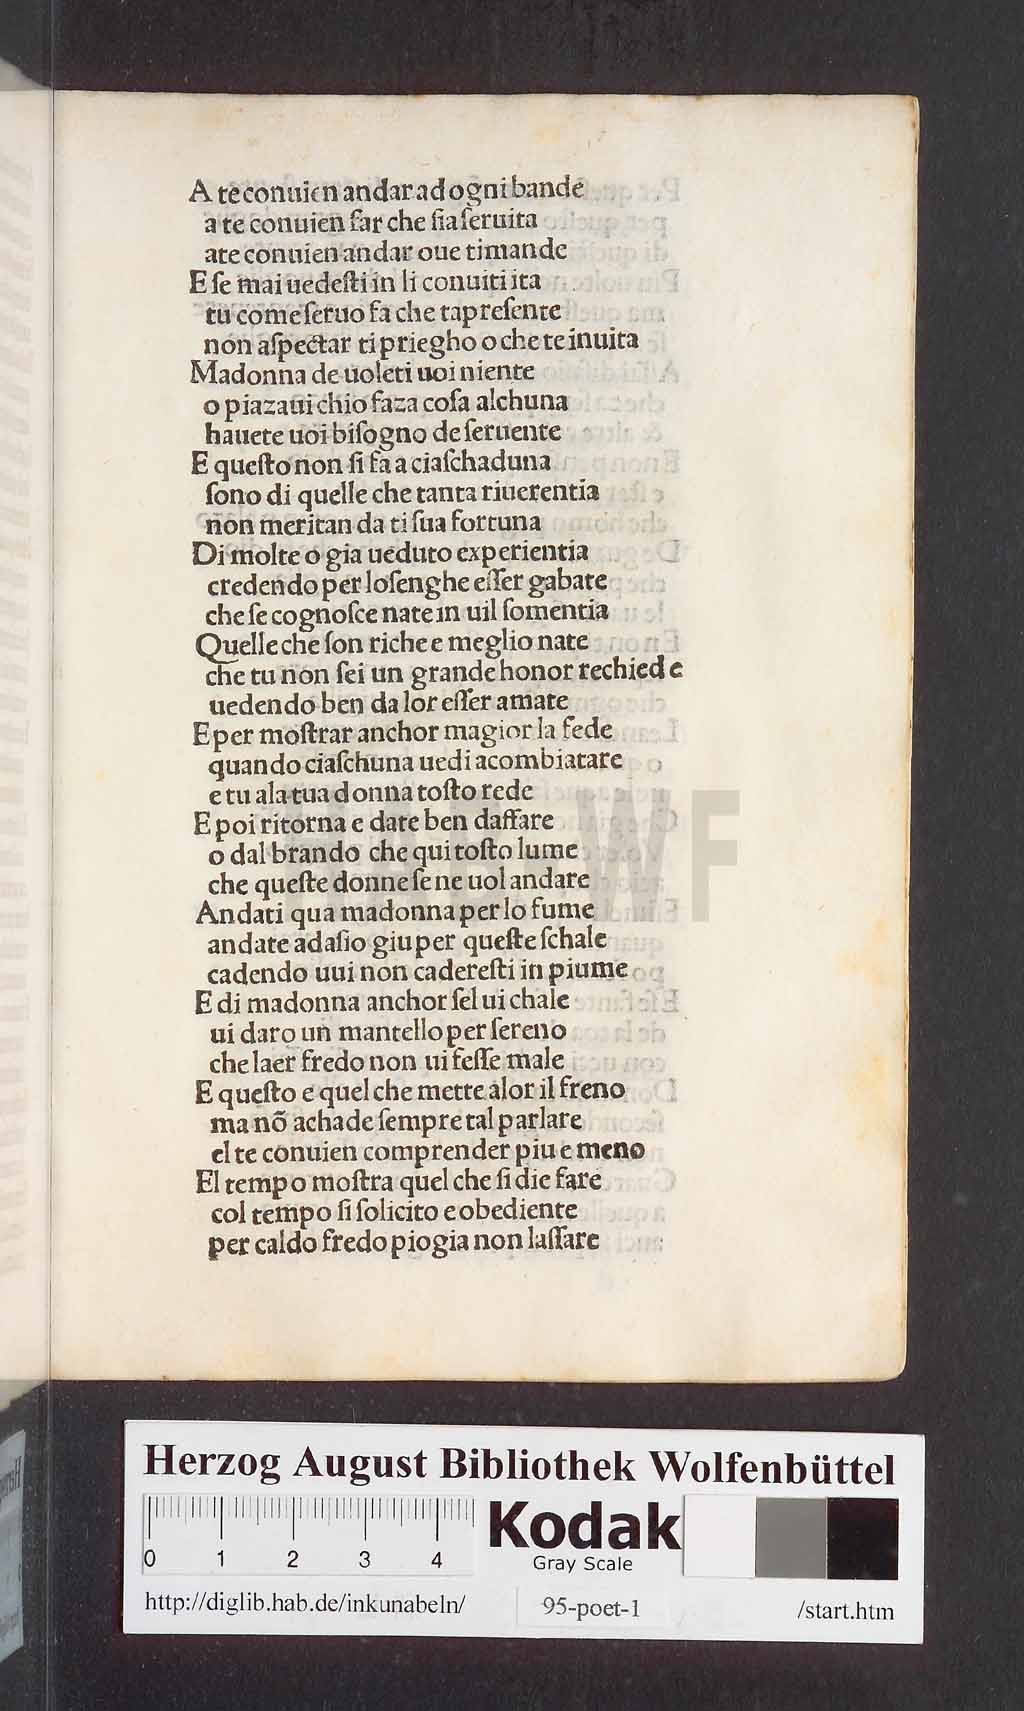 A te conuien andar ad ogni bande
a te conuien far che ſia ſeruita
ate conuien andar oue timande
E ſe mai uedeſti in li conuiti ita
tu come ſeruo fa che tapreſente
non aſpectar ti priegho o che te inuita
Madonna de uoleti uoi niente
o piazaui chio faza coſa alchuna
hauete uoi biſogno de ſeruente
E queſto non ſi fa a ciaſchaduna
ſono di quelle che tanta riuerentia
non meritan da ti ſua fortuna
Di molte o gia ueduto experientia
credendo per loſenghe eſſer gabate
che ſe cognoſce nate in uil ſomentia
Quelle che ſon riche e meglio nate
che tu non ſei un grande honor rechiede
uedendo ben da lor eſſer amate
E per moſtrar anchor magior la fede
quando ciaſchuna uedi acombiatare
e tu ala tua donna toſto rede
E poi ritorna e date ben daffare
o dal brando che qui toſto lume
che queſte donne ſe ne uol andare
Andati qua madonna per lo fume
andate adaſio giu per queſte ſchale
cadendo uui non cadereſti in piume
E di madonna anchor ſel ui chale
ui daro un mantello per ſereno
che laer fredo non ui feſſe male
E queſto e quel che mette alor il freno
ma nō achade ſempre tal parlare
el te conuien comprender piu e meno
El tempo moſtra quel che ſi die fare
col tempo ſi ſolicito e obediente
per caldo fredo piogia non laſſare
HAB WF
Herzog August Bibliothek Wolfenbüttel
0 1 2 3 4
Kodak
Gray Scale
http://diglib.hab.de/inkunabeln/ 95-poet-1 /start.htm